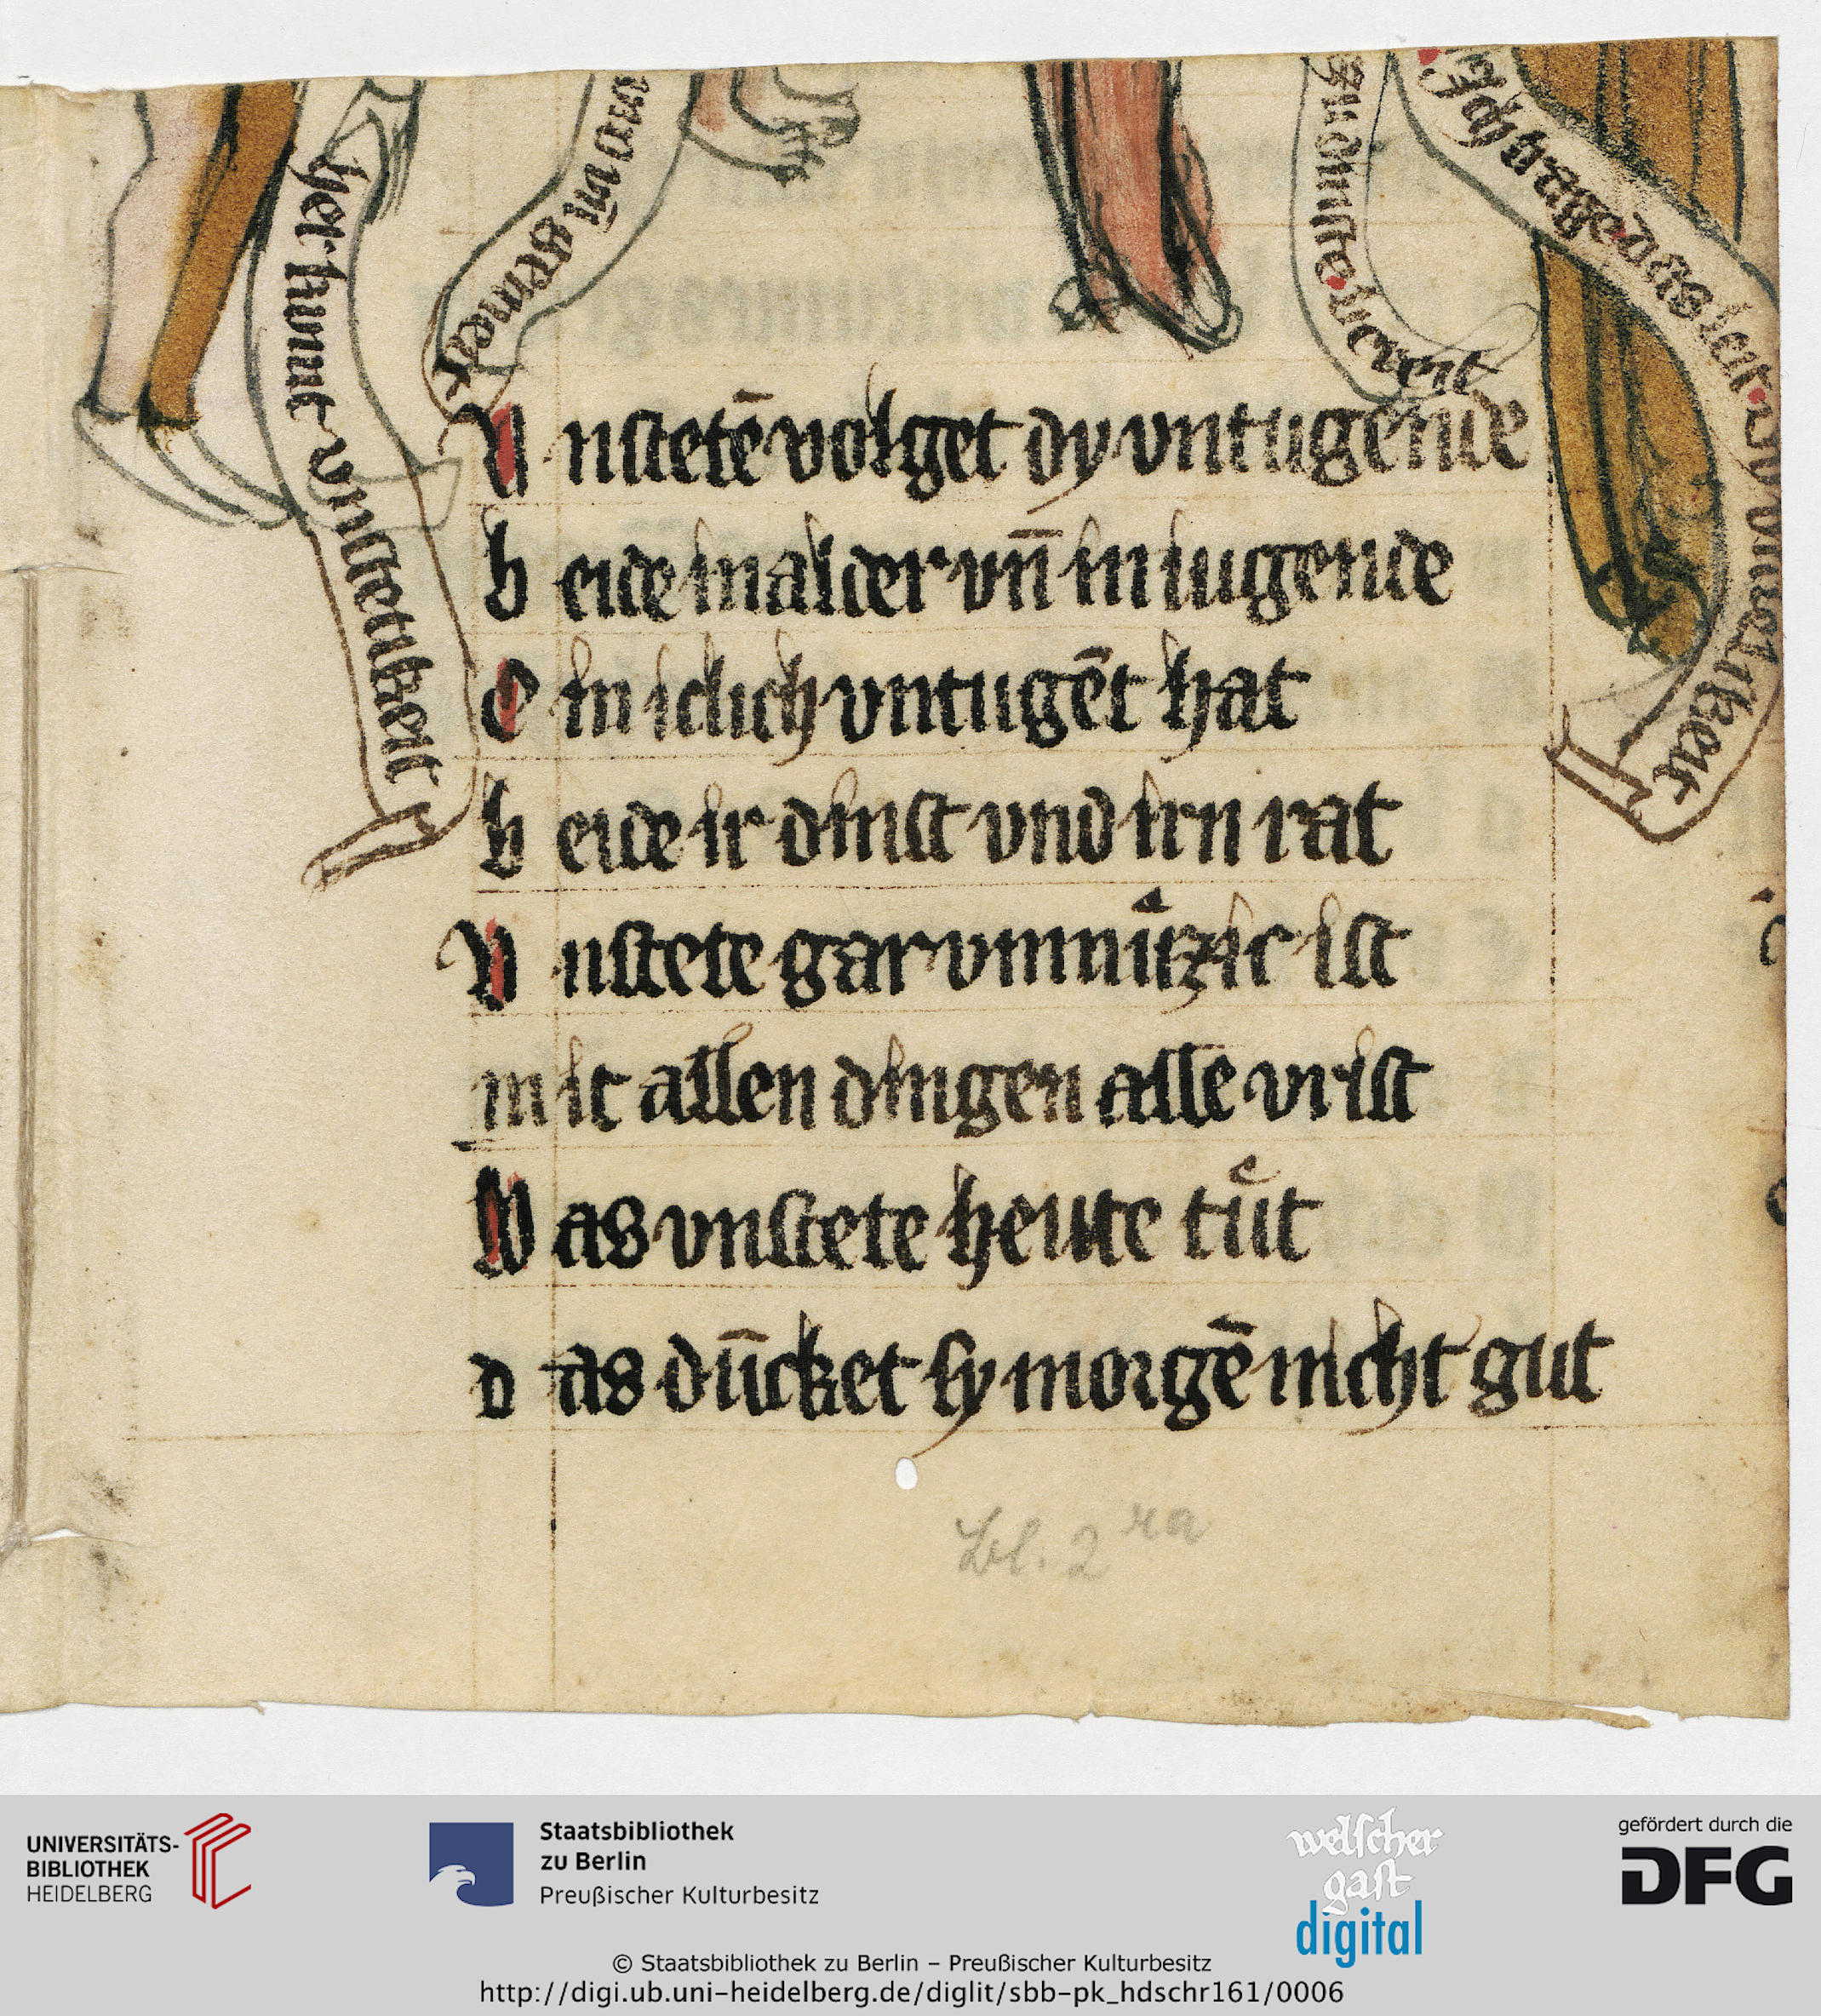 her kumt vnstetikeit
vnd mī steiner
zu dinste bereit
Jch trage das leit
V nstetē volget dy vntugende
b eide in alder vn̄ in iugende
E in iclich vntugēt hat
b eide ir dinst vnd irn rat
V nstete gar vnmuͤzic ist
m it allen dingen alle vrist
W as vnstete heute tuͤt
d as dūcket sy morgē nicht gut
Bl. 2 ra
UNIVERSITÄTS-
BIBLIOTHEK
HEIDELBERG
Staatsbibliothek
zu Berlin
Preußischer Kulturbesitz
welscher
gast
digital
gefördert durch die
DFG
© Staatsbibliothek zu Berlin – Preußischer Kulturbesitz
http://digi.ub.uni-heidelberg.de/diglit/sbb-pk_hdschr161/0006